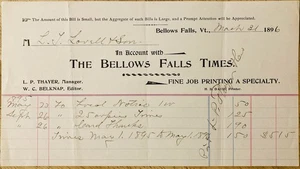 The Amount of this Bill is Small, but the Aggregate of such Bills is Large, and a Prompt Attention will be Appreciated.
Bellows Falls, Vt., March 31 1896
L. S. Lovell & Son
In Account with
THE BELLOWS FALLS TIMES,
L. P. THAYER, Manager,
W. C. BELKNAP, Editor.
FINE JOB PRINTING A SPECIALTY.
1895
May 23 To Local Notice 100 50
Sept 26 " 25 Times 1 25
" 26 " Card Thanks 90
Times May 1. 1895 to May 1. 1 50